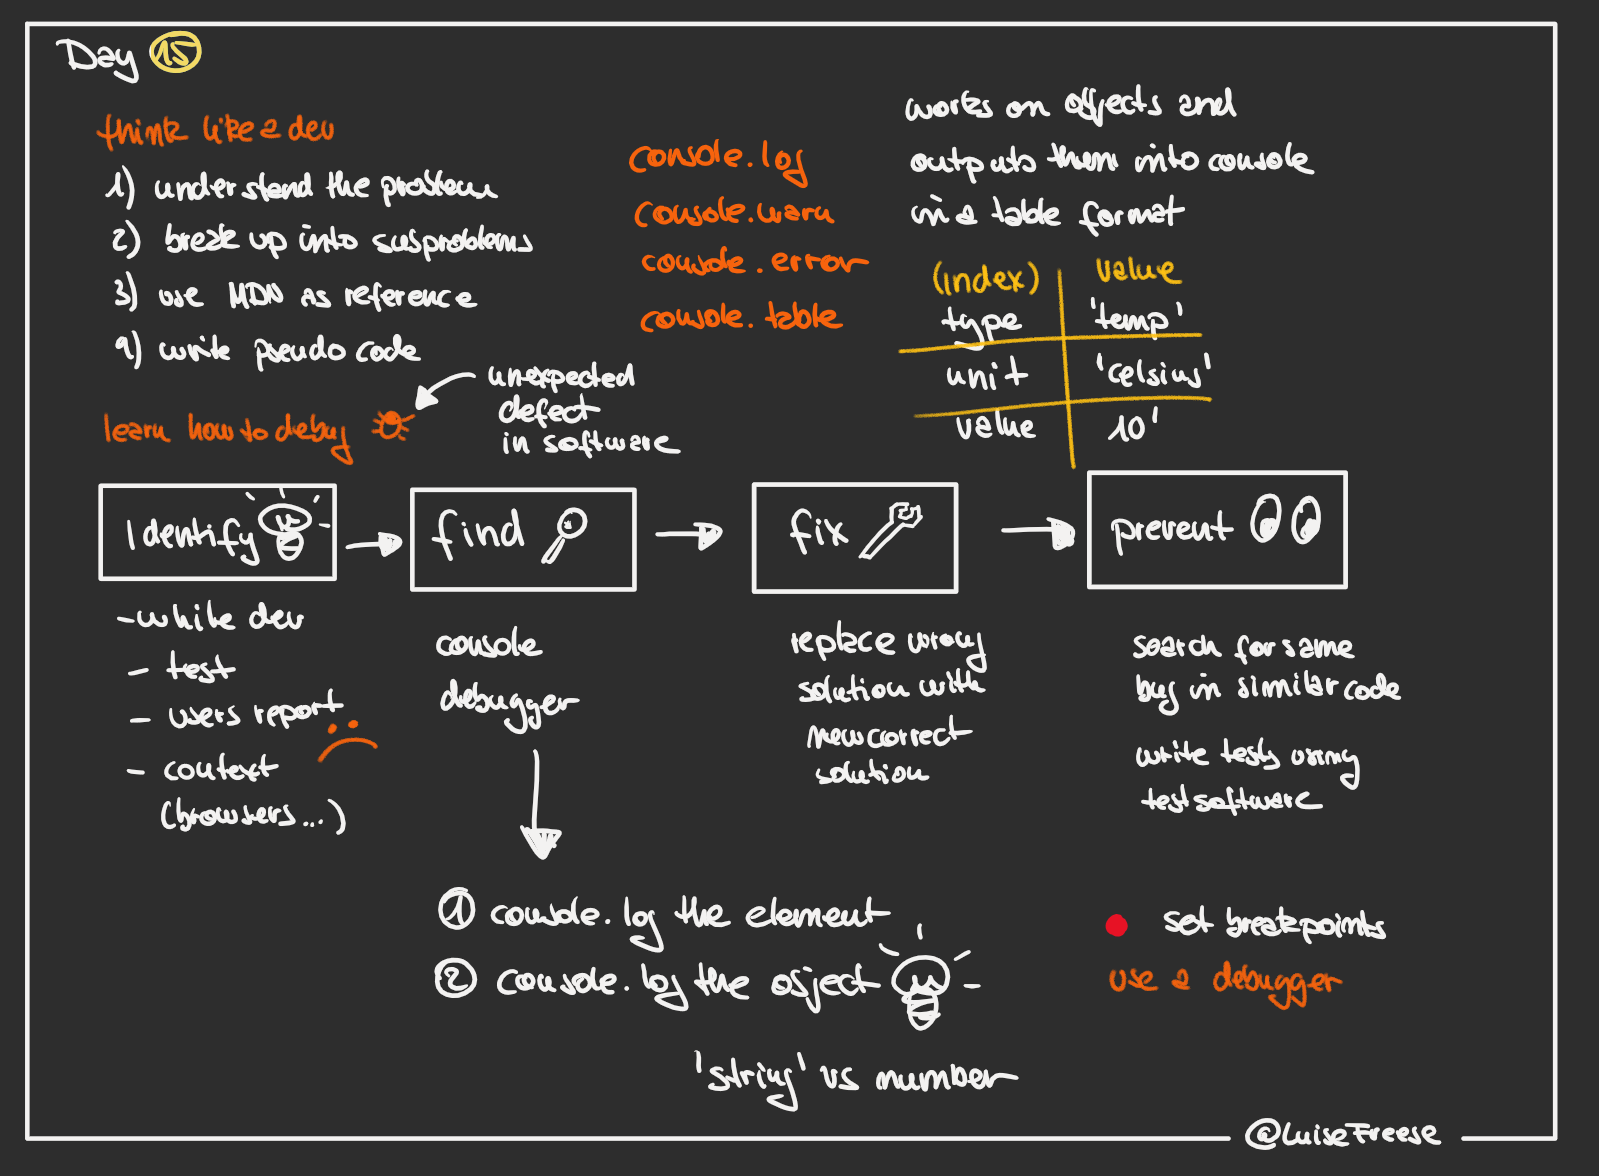 Day 15
think like a dev
1) understand the problem
2) break up into subproblems
3) use MDN as reference
4) write pseudo code
console.log
console.warn
console.error
console.table
works on objects and
outputs them into console
in a table format
(index) value
type 'temp'
unit 'celsius'
value 10'
learn how to debug
unexpected
defect
in software
Identify
find
fix
prevent
- while dev
- test
- users report
- context
(browsers...)
console
debugger
replace wrong
solution with
new correct
solution
search for same
bug in similar code
write tests using
test software
1 console.log the element
2 console.log the object
'string' vs number
set breakpoints
use a debugger
@LuiseFreese